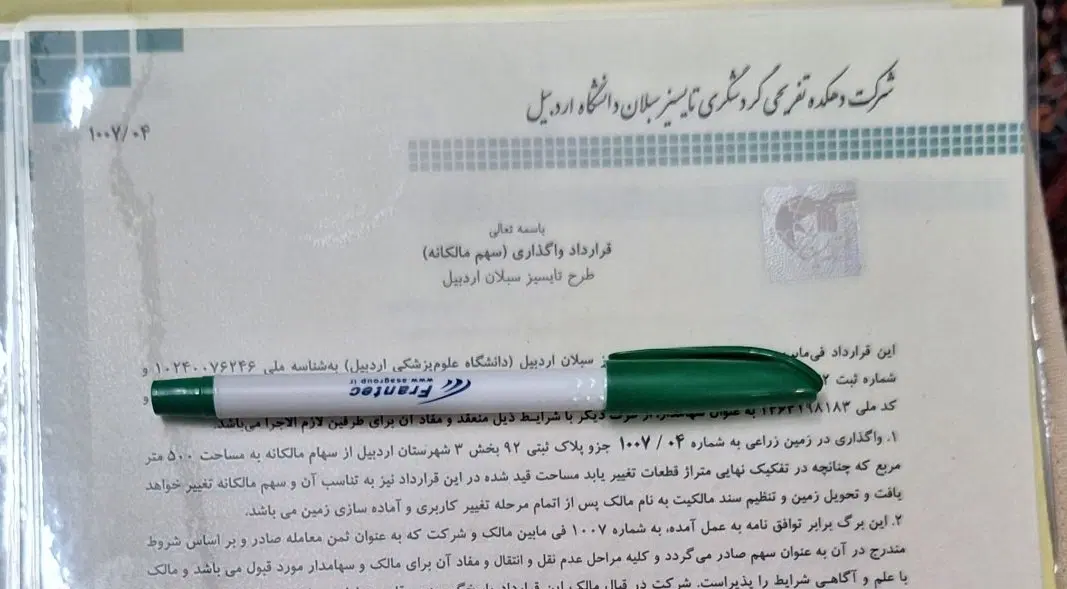 شرکت دهکده تفریحی گردشگری تایسیز سبلان دانشگاه اردبیل
۱۰۰۷/۰۴
باسمه تعالی
قرارداد واگذاری (سهم مالکانه)
طرح تایسیز سبلان اردبیل
این قرارداد فی‌مابین سبلان اردبیل (دانشگاه علوم‌پزشکی اردبیل) به‌شناسه ملی ۱۰۲۴۰۰۷۶۲۴۶ و
شماره ثبت
کد ملی به عنوان سهامدار، از طرف دیگر با شرایط ذیل منعقد و مفاد آن برای طرفین لازم الاجرا می‌باشد.
Frantec
www.asagroup.ir
۱. واگذاری در زمین زراعی به شماره ۰۴ / ۱۰۰۷ جزو پلاک ثبتی ۹۲ بخش ۳ شهرستان اردبیل از سهام مالکانه به مساحت ۵۰۰ متر
مربع که چنانچه در تفکیک نهایی متراژ قطعات تغییر یابد مساحت قید شده در این قرارداد نیز به تناسب آن و سهم مالکانه تغییر خواهد
یافت و تحویل زمین و تنظیم سند مالکیت به نام مالک پس از اتمام مرحله تغییر کاربری و آماده سازی زمین می باشد.
۲. این برگ برابر توافق نامه به عمل آمده، به شماره ۱۰۰۷ فی مابین مالک و شرکت که به عنوان ثمن معامله صادر و بر اساس شروط
مندرج در آن به عنوان سهم صادر می‌گردد و کلیه مراحل عدم نقل و انتقال و مفاد آن برای مالک و سهامدار مورد قبول می باشد و مالک
با علم و آگاهی شرایط را پذیراست. شرکت در قبال مالک این قرارداد